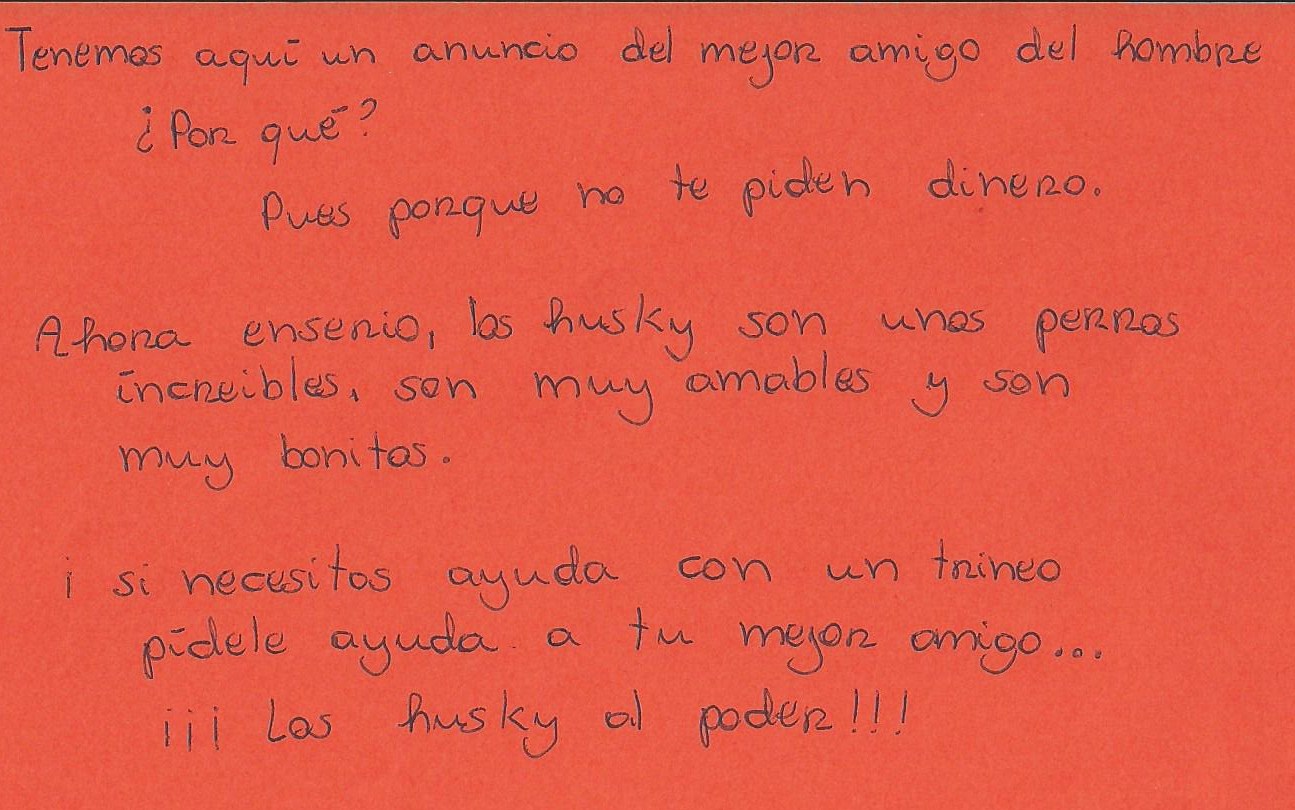 Tenemos aquí un anuncio del mejor amigo del hombre
¿Por qué?
Pues porque no te piden dinero.
Ahora enserio, los husky son unos perros
increibles, son muy amables y son
muy bonitos.
¡ si necesitas ayuda con un trineo
pídele ayuda a tu mejor amigo...
¡¡¡ Los husky al poder!!!